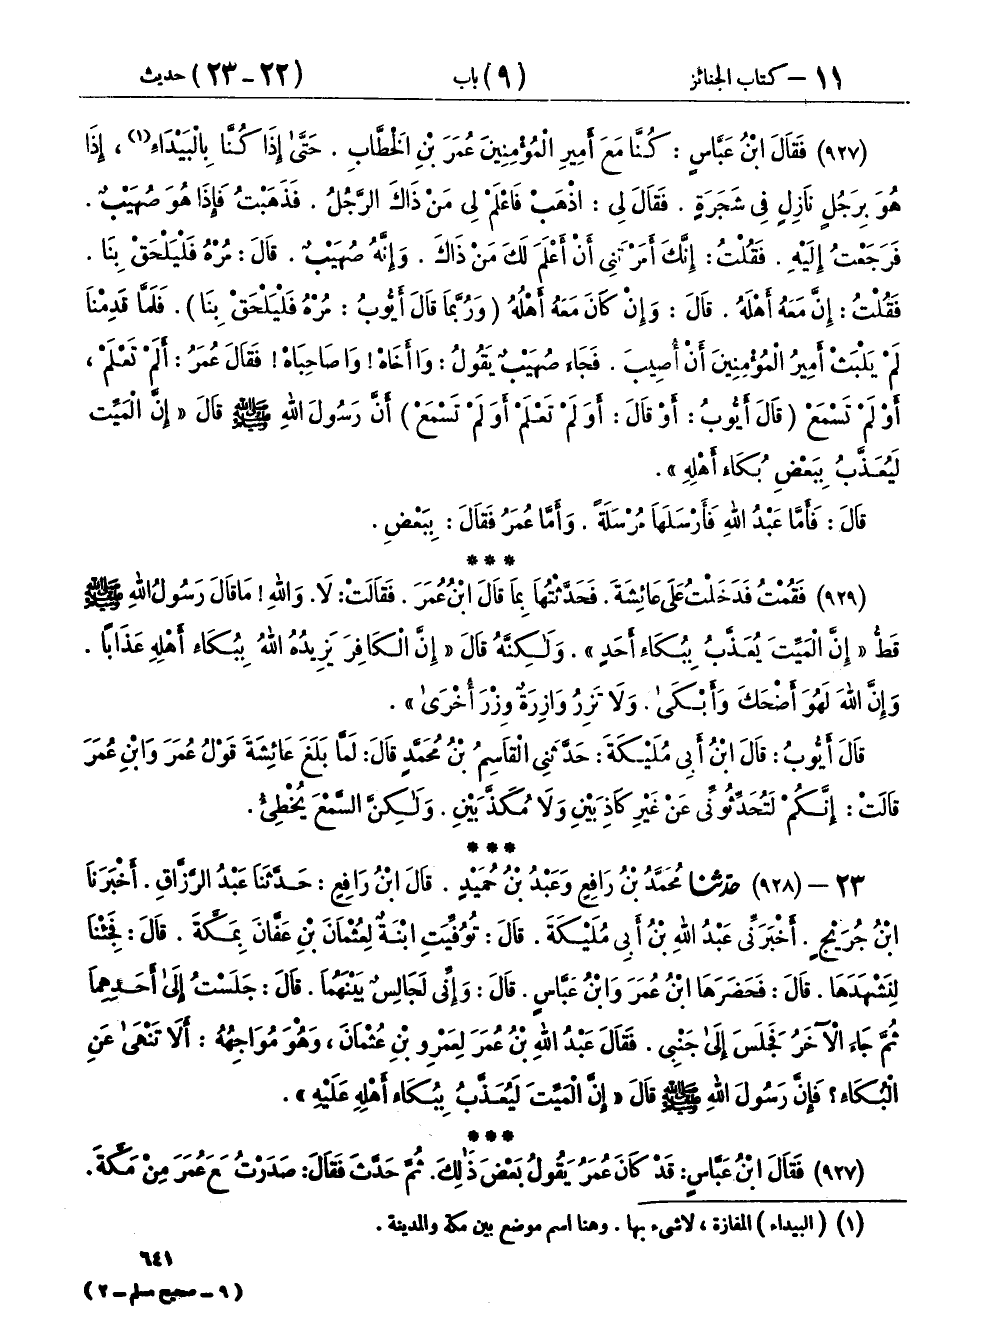 ١١ – كتاب الجنائز (٩) باب (٢٢ – ٢٣) حديث
(٩٢٧) فَقَالَ ابْنُ عَبَّاسٍ : كُنَّا مَعَ أَمِيرِ الْمُؤْمِنِينَ عُمَرَ بْنِ الْخَطَّابِ . حَتَّىٰ إِذَا كُنَّا بِالْبَيْدَاءِ(١) ، إِذَا
هُوَ بِرَجُلٍ نَازِلٍ فِي شَجَرَةٍ . فَقَالَ لِي : اذْهَبْ فَاعْلَمْ لِي مَنْ ذَاكَ الرَّجُلُ . فَذَهَبْتُ فَإِذَا هُوَ صُهَيْبٌ .
فَرَجَعْتُ إِلَيْهِ . فَقُلْتُ : إِنَّكَ أَمَرْتَنِي أَنْ أَعْلَمَ لَكَ مَنْ ذَاكَ . وَإِنَّهُ صُهَيْبٌ . قَالَ : مُرْهُ فَلْيَلْحَقْ بِنَا .
فَقُلْتُ : إِنَّ مَعَهُ أَهْلَهُ . قَالَ : وَإِنْ كَانَ مَعَهُ أَهْلُهُ ( وَرُبَّمَا قَالَ أَيُّوبُ : مُرْهُ فَلْيَلْحَقْ بِنَا ) . فَلَمَّا قَدِمْنَا
لَمْ يَلْبَثْ أَمِيرُ الْمُؤْمِنِينَ أَنْ أُصِيبَ . فَجَاءَ صُهَيْبٌ يَقُولُ : وَا أَخَاهْ ! وَا صَاحِبَاهْ ! فَقَالَ عُمَرُ : أَلَمْ تَعْلَمْ ،
أَوْ لَمْ تَسْمَعْ ( قَالَ أَيُّوبُ : أَوْ قَالَ : أَوَ لَمْ تَعْلَمْ أَوَ لَمْ تَسْمَعْ ) أَنَّ رَسُولَ اللهِ ﷺ قَالَ « إِنَّ الْمَيِّتَ
لَيُعَذَّبُ بِبَعْضِ بُكَاءِ أَهْلِهِ » .
قَالَ : فَأَمَّا عَبْدُ اللهِ فَأَرْسَلَهَا مُرْسَلَةً . وَأَمَّا عُمَرُ فَقَالَ : بِبَعْضِ .
***
(٩٢٩) فَقُمْتُ فَدَخَلْتُ عَلَى عَائِشَةَ . فَحَدَّثْتُهَا بِمَا قَالَ ابْنُ عُمَرَ . فَقَالَتْ : لَا . وَاللهِ ! مَا قَالَ رَسُولُ اللهِ ﷺ
قَطُّ « إِنَّ الْمَيِّتَ يُعَذَّبُ بِبُكَاءِ أَحَدٍ » . وَلَـٰكِنَّهُ قَالَ « إِنَّ الْكَافِرَ يَزِيدُهُ اللهُ بِبُكَاءِ أَهْلِهِ عَذَابًا .
وَإِنَّ اللهَ لَهُوَ أَضْحَكَ وَأَبْكَىٰ . وَلَا تَزِرُ وَازِرَةٌ وِزْرَ أُخْرَىٰ » .
قَالَ أَيُّوبُ : قَالَ ابْنُ أَبِي مُلَيْكَةَ : حَدَّثَنِي الْقَاسِمُ بْنُ مُحَمَّدٍ قَالَ : لَمَّا بَلَغَ عَائِشَةَ قَوْلُ عُمَرَ وَابْنِ عُمَرَ
قَالَتْ : إِنَّكُمْ لَتُحَدِّثُونِّي عَنْ غَيْرِ كَاذِبَيْنِ وَلَا مُكَذَّبَيْنِ . وَلَـٰكِنَّ السَّمْعَ يُخْطِئُ .
***
٢٣ – (٩٢٨) حدثنا مُحَمَّدُ بْنُ رَافِعٍ وَعَبْدُ بْنُ حُمَيْدٍ . قَالَ ابْنُ رَافِعٍ : حَدَّثَنَا عَبْدُ الرَّزَّاقِ . أَخْبَرَنَا
ابْنُ جُرَيْجٍ . أَخْبَرَنِي عَبْدُ اللهِ بْنُ أَبِي مُلَيْكَةَ . قَالَ : تُوُفِّيَتِ ابْنَةٌ لِعُثْمَانَ بْنِ عَفَّانَ بِمَكَّةَ . قَالَ : فَجِئْنَا
لِنَشْهَدَهَا . قَالَ : فَحَضَرَهَا ابْنُ عُمَرَ وَابْنُ عَبَّاسٍ . قَالَ : وَإِنِّي لَجَالِسٌ بَيْنَهُمَا . قَالَ : جَلَسْتُ إِلَىٰ أَحَدِهِمَا
ثُمَّ جَاءَ الْآخَرُ فَجَلَسَ إِلَىٰ جَنْبِي . فَقَالَ عَبْدُ اللهِ بْنُ عُمَرَ لِعَمْرِو بْنِ عُثْمَانَ ، وَهُوَ مُوَاجِهُهُ : أَلَا تَنْهَىٰ عَنِ
الْبُكَاءِ ؟ فَإِنَّ رَسُولَ اللهِ ﷺ قَالَ « إِنَّ الْمَيِّتَ لَيُعَذَّبُ بِبُكَاءِ أَهْلِهِ عَلَيْهِ » .
***
(٩٢٧) فَقَالَ ابْنُ عَبَّاسٍ : قَدْ كَانَ عُمَرُ يَقُولُ بَعْضَ ذَٰلِكَ . ثُمَّ حَدَّثَ فَقَالَ : صَدَرْتُ مَعَ عُمَرَ مِنْ مَكَّةَ .
(١) ( البيداء ) المفازة ، لا شيء بها . وهنا اسم موضع بين مكة والمدينة .
٦٤١
( ٩ – صحيح مسلم – ٢ )